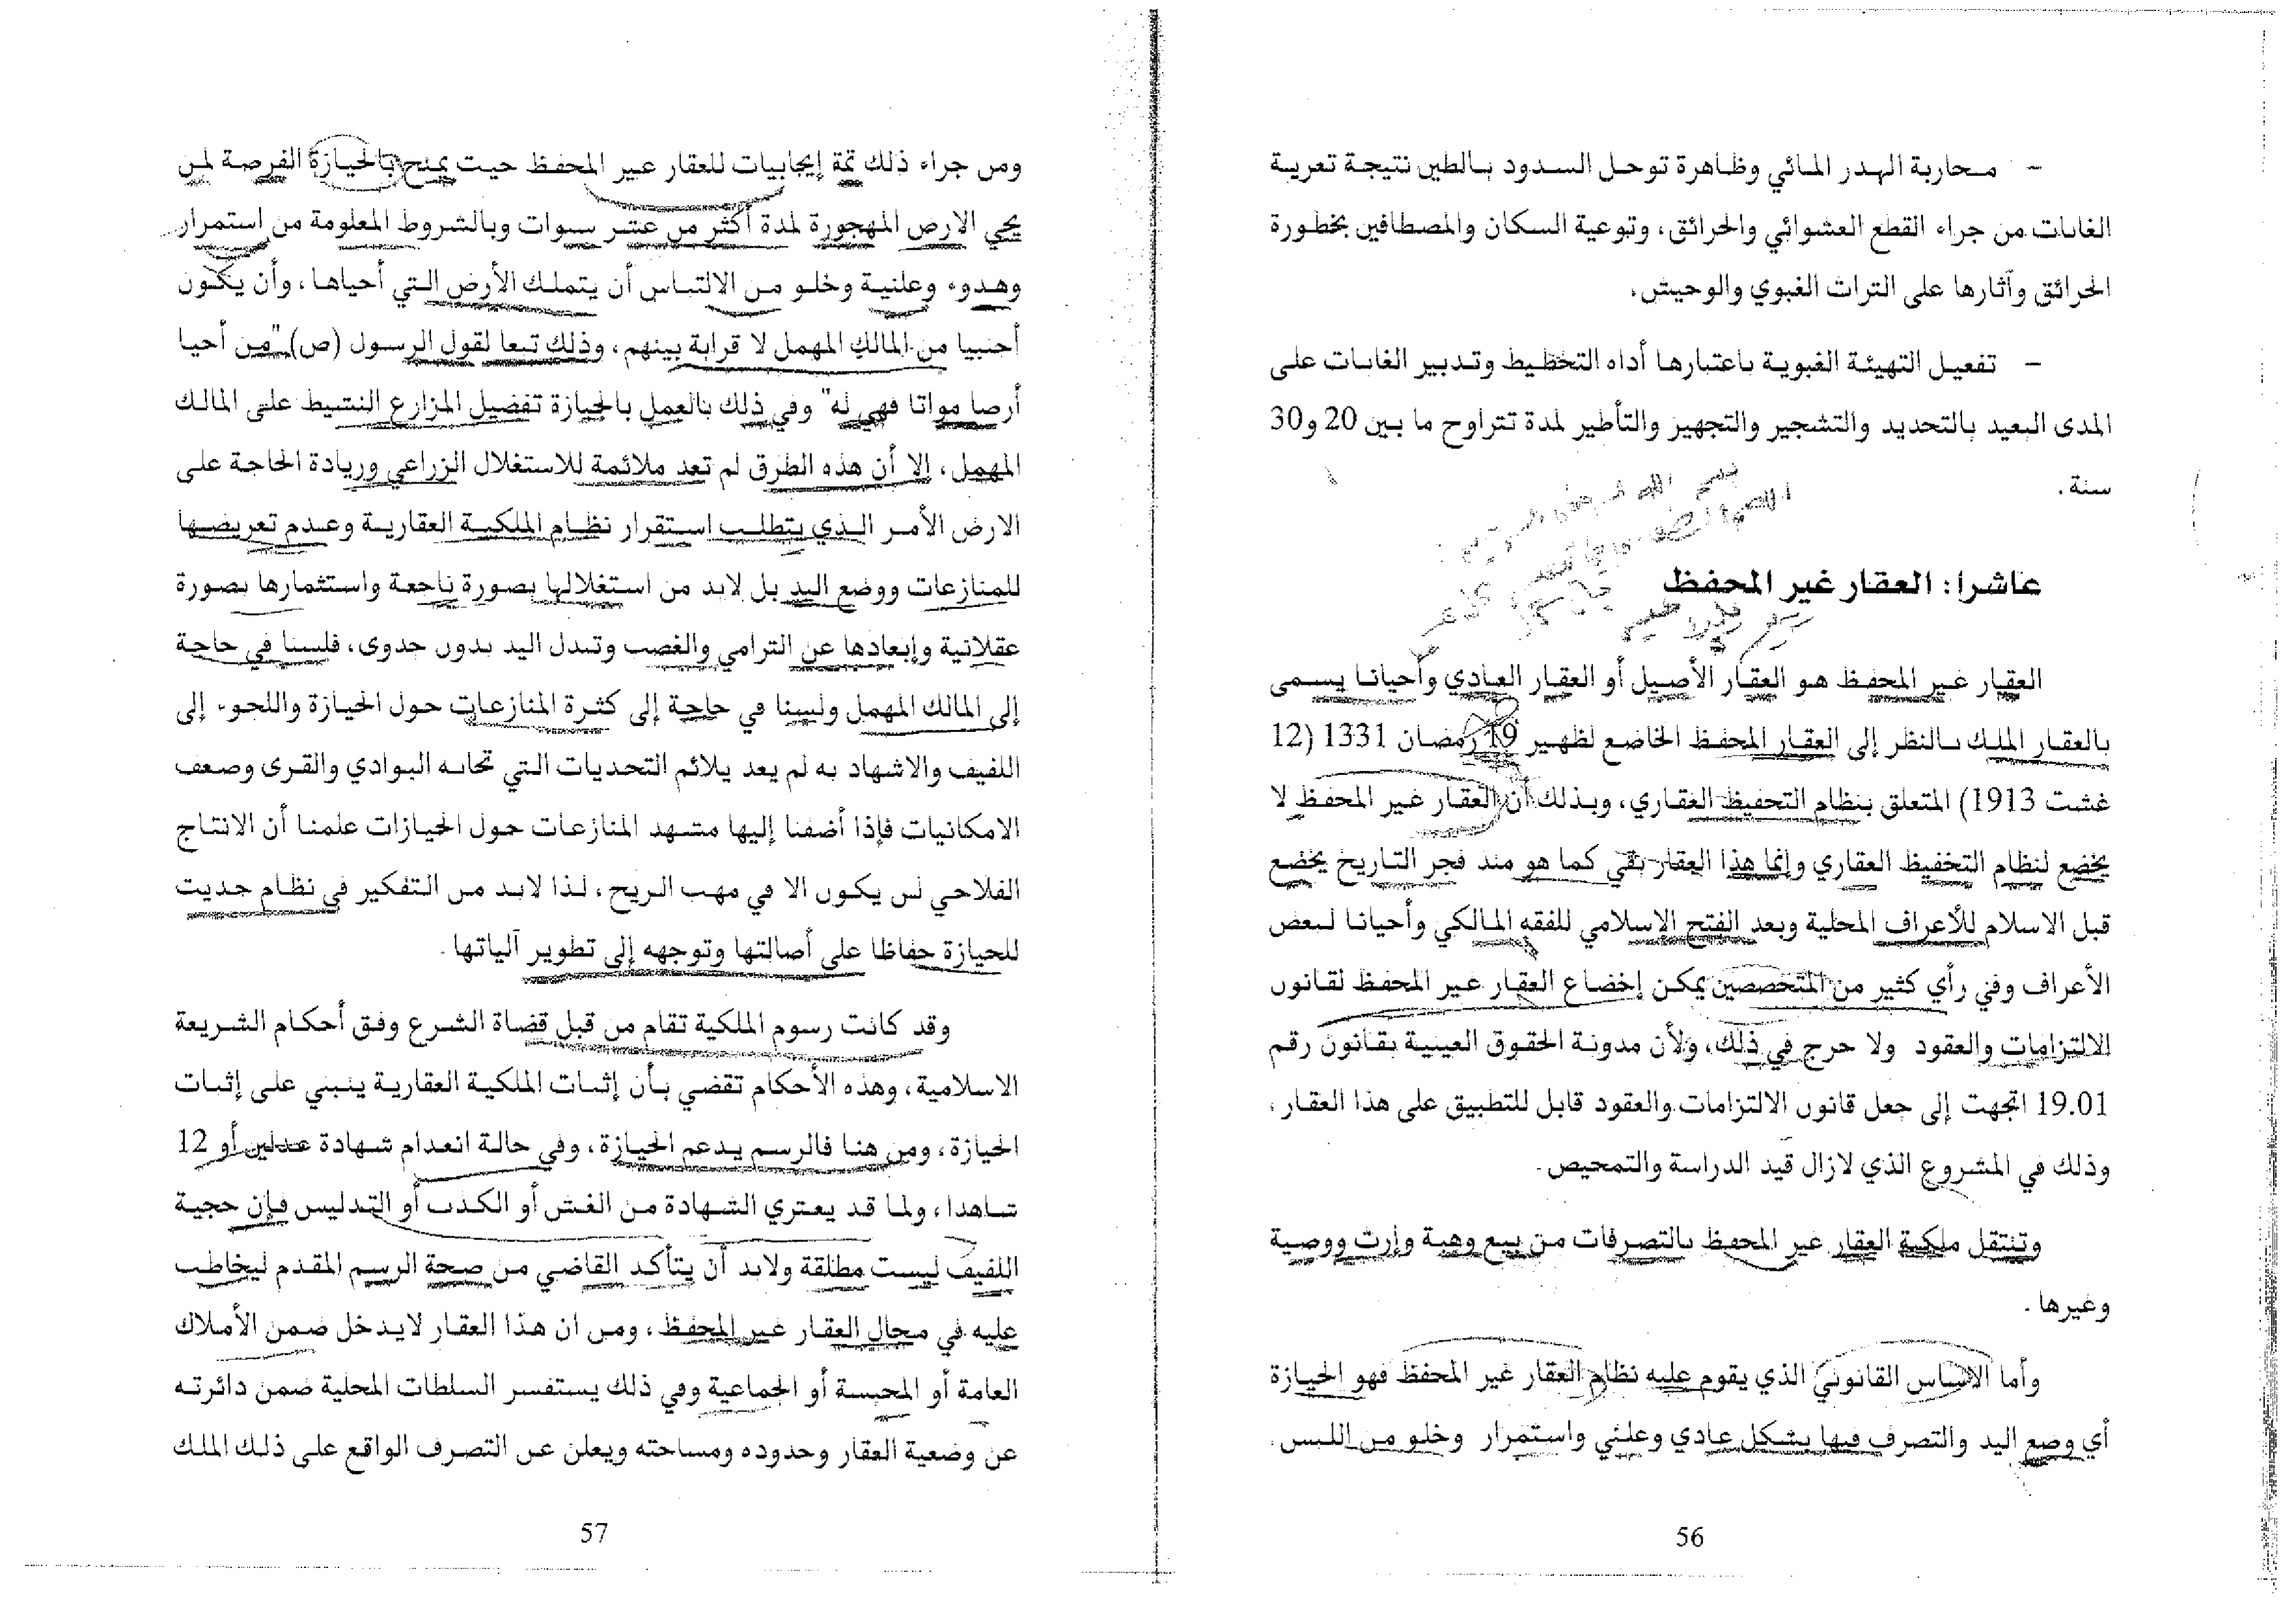 - محاربة الهدر المائي وظاهرة توحل السدود بالطين نتيجة تعرية
الغابات من جراء القطع العشوائي والحرائق، وتوعية السكان والمصطافين بخطورة
الحرائق وآثارها على التراث الغبوي والوحيش.
- تفعيل التهيئة الغبوية باعتبارها أداه التخطيط وتدبير الغابات على
المدى البعيد بالتحديد والتشجير والتجهيز والتأطير لمدة تتراوح ما بين 20 و30
سنة.
عاشرا: العقار غير المحفظ
العقار غير المحفظ هو العقار الأصيل أو العقار العادي وأحيانا يسمى
بالعقار الملك بالنظر إلى العقار المحفظ الخاضع لظهير 19 رمضان 1331 (12
غشت 1913) المتعلق بنظام التحفيظ العقاري، وبذلك أن العقار غير المحفظ لا
يخضع لنظام التحفيظ العقاري وإنما هذا العقار بقي كما هو منذ فجر التاريخ يخضع
قبل الاسلام للأعراف المحلية وبعد الفتح الاسلامي للفقه المالكي وأحيانا لبعض
الأعراف وفي رأي كثير من المتخصصين يمكن إخضاع العقار غير المحفظ لقانون
الالتزامات والعقود ولا حرج في ذلك، ولأن مدونة الحقوق العينية بقانون رقم
19.01 اتجهت إلى جعل قانون الالتزامات والعقود قابل للتطبيق على هذا العقار،
وذلك في المشروع الذي لازال قيد الدراسة والتمحيص.
وتنتقل ملكية العقار غير المحفظ بالتصرفات من بيع وهبة وإرث ووصية
وغيرها.
وأما الاساس القانوني الذي يقوم عليه نظام العقار غير المحفظ فهو الحيازة
أي وضع اليد والتصرف فيها بشكل عادي وعلني واستمرار وخلو من اللبس.
56
ومن جراء ذلك ثمة إيجابيات للعقار غير المحفظ حيت يمنح بالحيازة الفرصة لمن
يحي الارض المهجورة لمدة أكثر من عشر سنوات وبالشروط المعلومة من استمرار
وهدوء وعلنية وخلو من الالتباس أن يتملك الأرض التي أحياها، وأن يكون
أجنبيا من المالك المهمل لا قرابة بينهم، وذلك تبعا لقول الرسول (ص) "من أحيا
أرضا مواتا فهي له" وفي ذلك بالعمل بالحيازة تفضيل المزارع النشيط على المالك
المهمل، إلا أن هذه الطرق لم تعد ملائمة للاستغلال الزراعي وزيادة الحاجة على
الارض الأمر الذي يتطلب استقرار نظام الملكية العقارية وعدم تعريضها
للمنازعات ووضع اليد بل لابد من استغلالها بصورة ناجعة واستثمارها بصورة
عقلانية وإبعادها عن الترامي والغصب وتبدل اليد بدون جدوى، فلسنا في حاجة
إلى المالك المهمل ولسنا في حاجة إلى كثرة المنازعات حول الحيازة واللجوء إلى
اللفيف والاشهاد به لم يعد يلائم التحديات التي تجابه البوادي والقرى وضعف
الامكانيات فإذا أضفنا إليها مشهد المنازعات حول الحيازات علمنا أن الانتاج
الفلاحي لن يكون الا في مهب الريح، لذا لابد من التفكير في نظام حديث
للحيازة حفاظا على أصالتها وتوجهه إلى تطوير آلياتها.
وقد كانت رسوم الملكية تقام من قبل قضاة الشرع وفق أحكام الشريعة
الاسلامية، وهذه الأحكام تقضي بأن إثبات الملكية العقارية ينبني على إثبات
الحيازة، ومن هنا فالرسم يدعم الحيازة، وفي حالة انعدام شهادة عدلين أو 12
شاهدا، ولما قد يعتري الشهادة من الغش أو الكذب أو التدليس فإن حجية
اللفيف ليست مطلقة ولابد أن يتأكد القاضي من صحة الرسم المقدم ليخاطب
عليه في مجال العقار غير المحفظ، ومن ان هذا العقار لايدخل ضمن الأملاك
العامة أو المحبسة أو الجماعية وفي ذلك يستفسر السلطات المحلية ضمن دائرته
عن وضعية العقار وحدوده ومساحته ويعلن عن التصرف الواقع على ذلك الملك
57